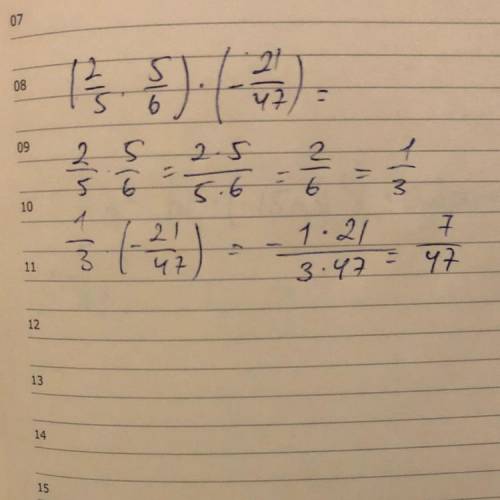 07
08 (2/5 · 5/6) · (-21/47) =
09 2/5 · 5/6 = 2·5/5·6 = 2/6 = 1/3
10
1/3 · (-21/47) = - 1·21/3·47 = 7/47
11
12
13
14
15